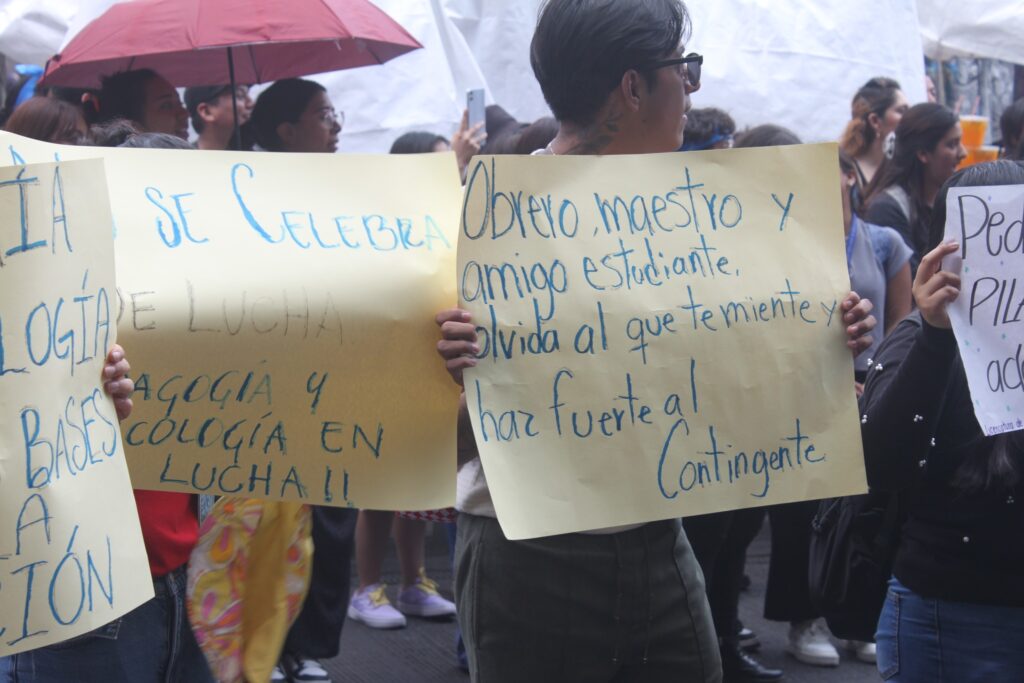 LOGÍA
BASES
A
CIÓN
SE CELEBRA
DE LUCHA
AGOGÍA Y
COLOGÍA EN
LUCHA !!
Obrero, maestro y
amigo estudiante,
olvida al que te miente y
haz fuerte al
Contingente
Ped
PIL